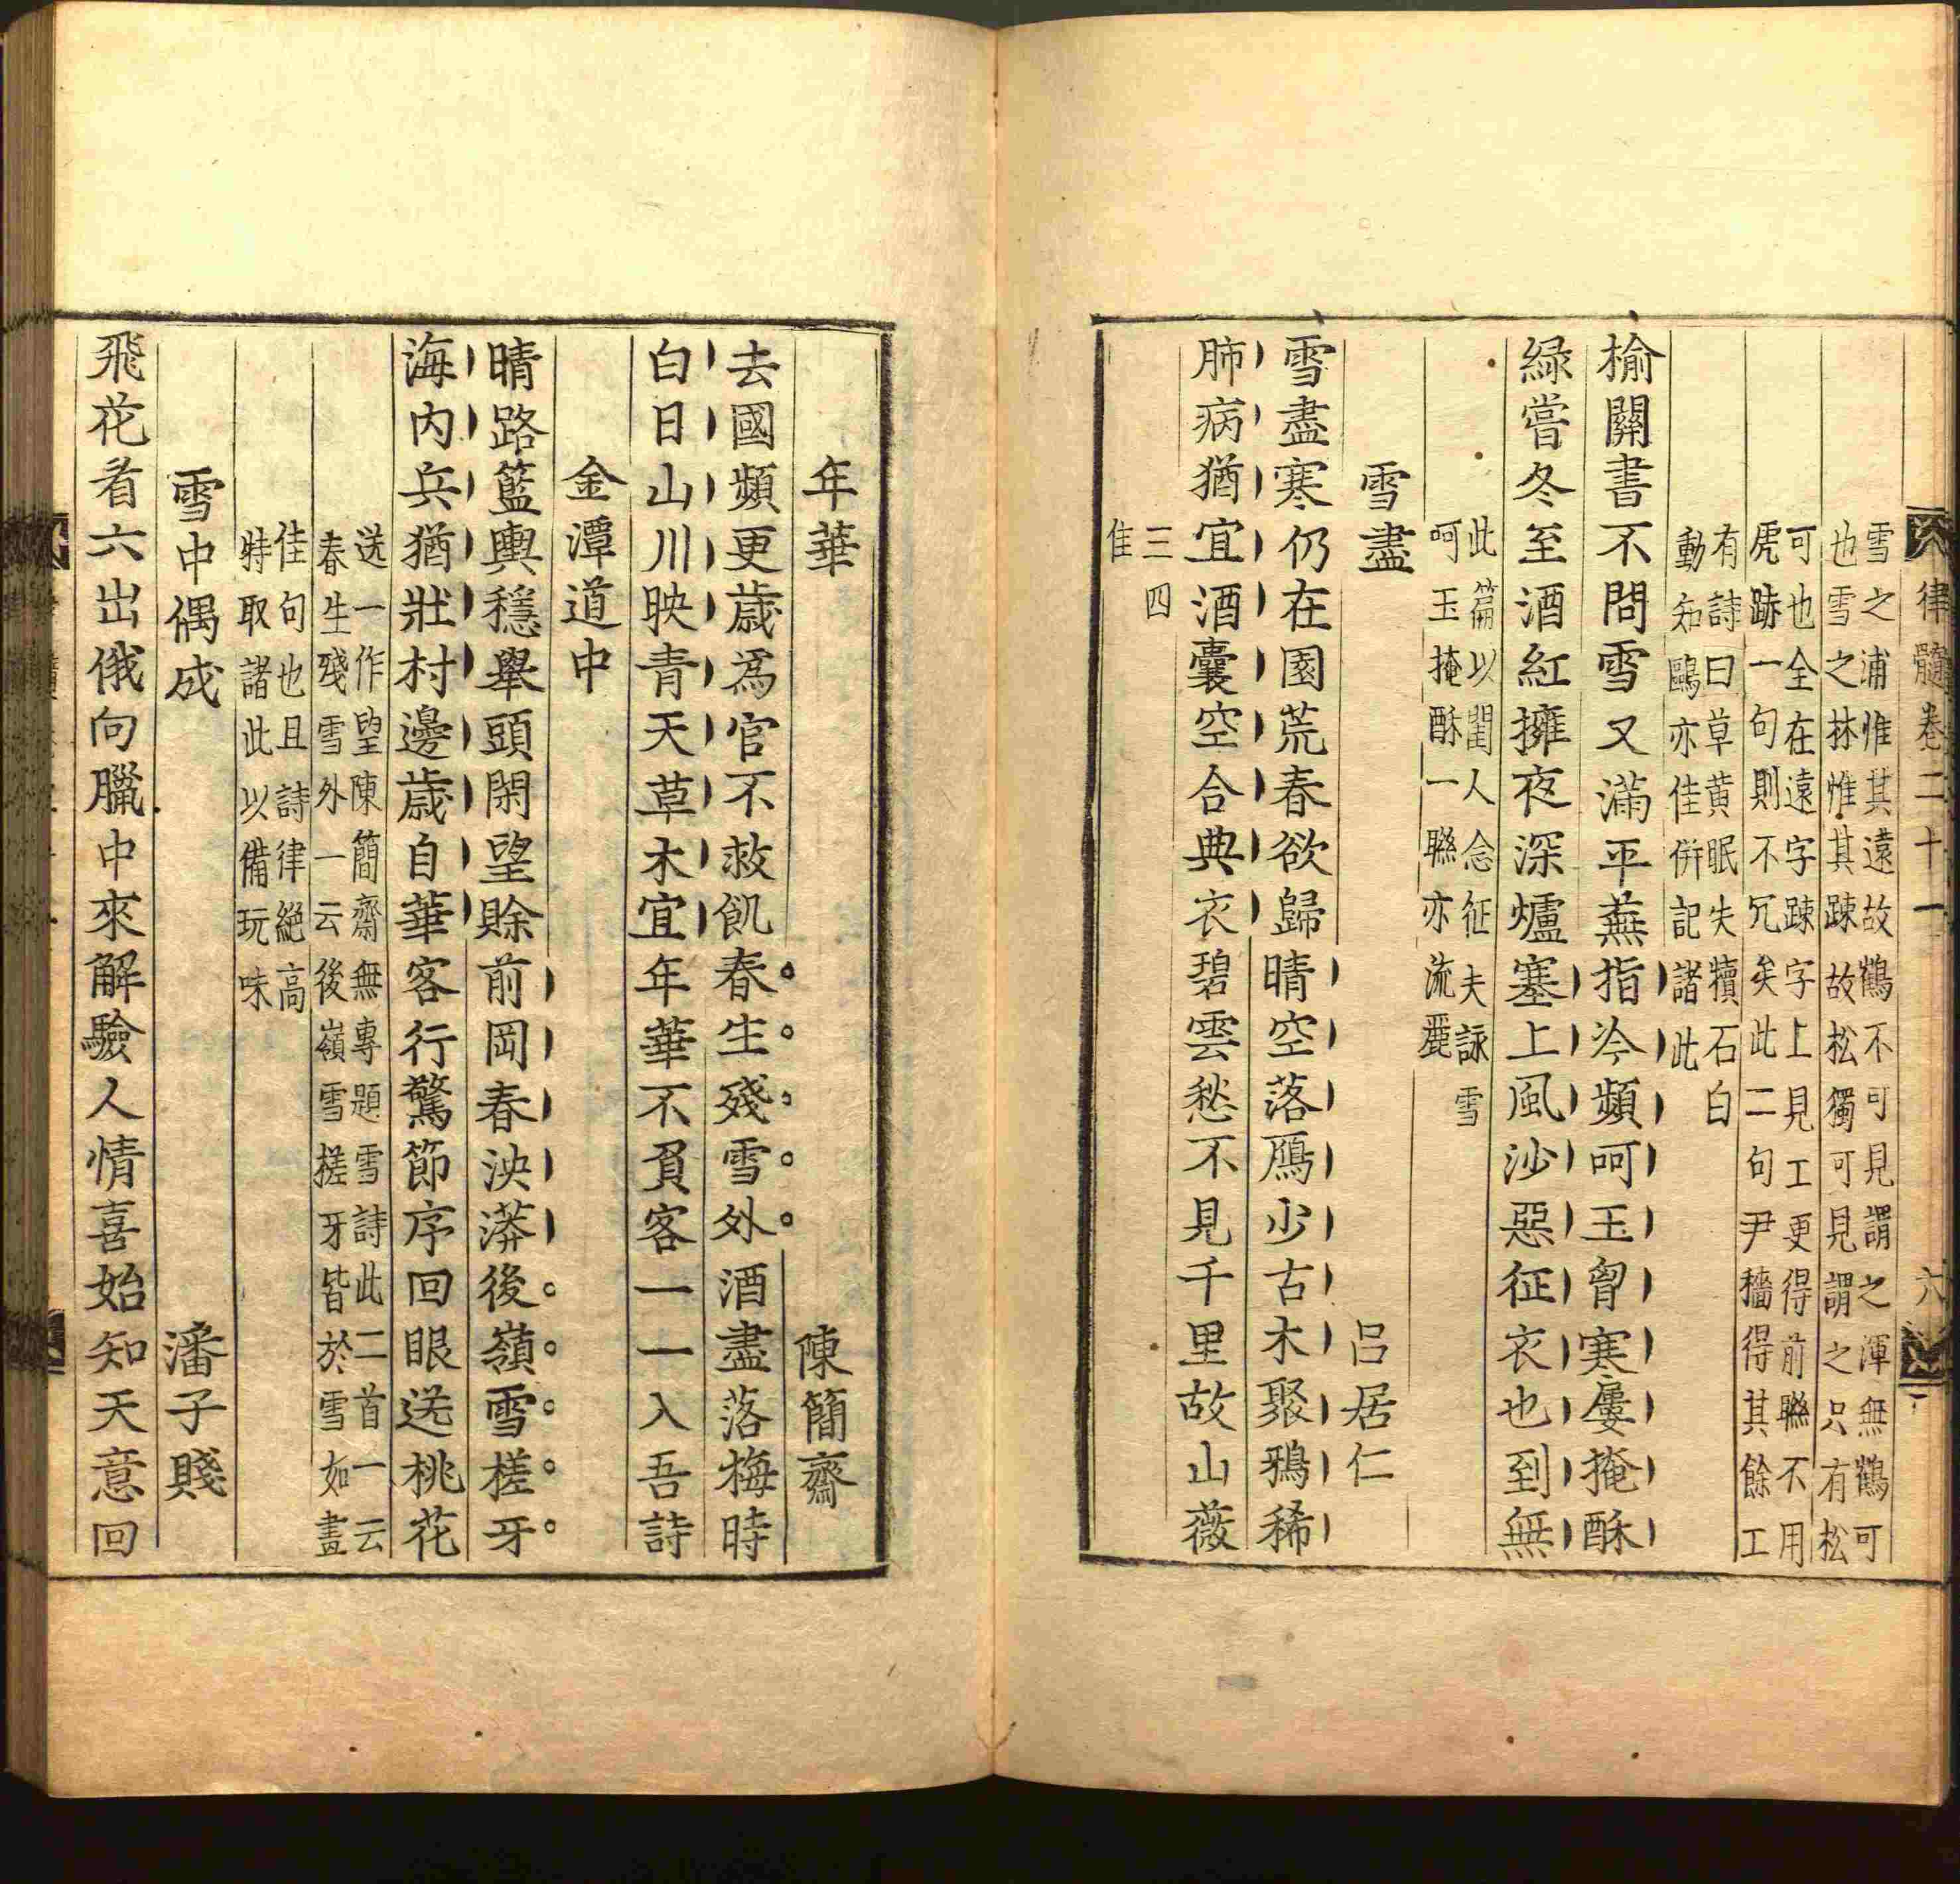 律髓卷二十一
六
雪之浦惟其遠故鶴不可見謂之渾無鶴可
也雪之林惟其踈故松獨可見謂之只有松
可也全在遠字踈字上見工更得前聯不用
虎跡一句則不冗矣此二句尹穡得其餘工
有詩曰草黄眠失犢石白
動知鷗亦佳併記諸此
榆關書不問雪又滿平蕪指冷頻呵玉胷寒屢掩酥
緑嘗冬至酒紅擁夜深爐塞上風沙惡征衣也到無
此篇以閨人念征夫詠雪
呵玉掩酥一聯亦流麗
雪盡
吕居仁
雪盡寒仍在園荒春欲歸晴空落鴈少古木聚鴉稀
肺病猶宜酒囊空合典衣碧雲愁不見千里故山薇
三四
佳
年華
陳簡齋
去國頻更歲為官不救飢春生殘雪外酒盡落梅時
白日山川映青天草木宜年華不負客一一入吾詩
金潭道中
晴路籃輿穩舉頭閑望賒前岡春泱漭後嶺雪槎牙
海内兵猶壯村邊歲自華客行驚節序回眼送桃花
送一作望陳簡齋無專題雪詩此二首一云
春生殘雪外一云後嶺雪槎牙皆於雪如畫
佳句也且詩律絕高
特取諸此以備玩味
雪中偶成
潘子賤
飛花看六出俄向臘中來解驗人情喜始知天意回